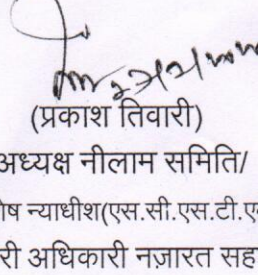 (प्रकाश तिवारी)
अध्यक्ष नीलाम समिति/
ष न्यायधीश(एस.सी.एस.टी.ए
री अधिकारी नज़ारत सह